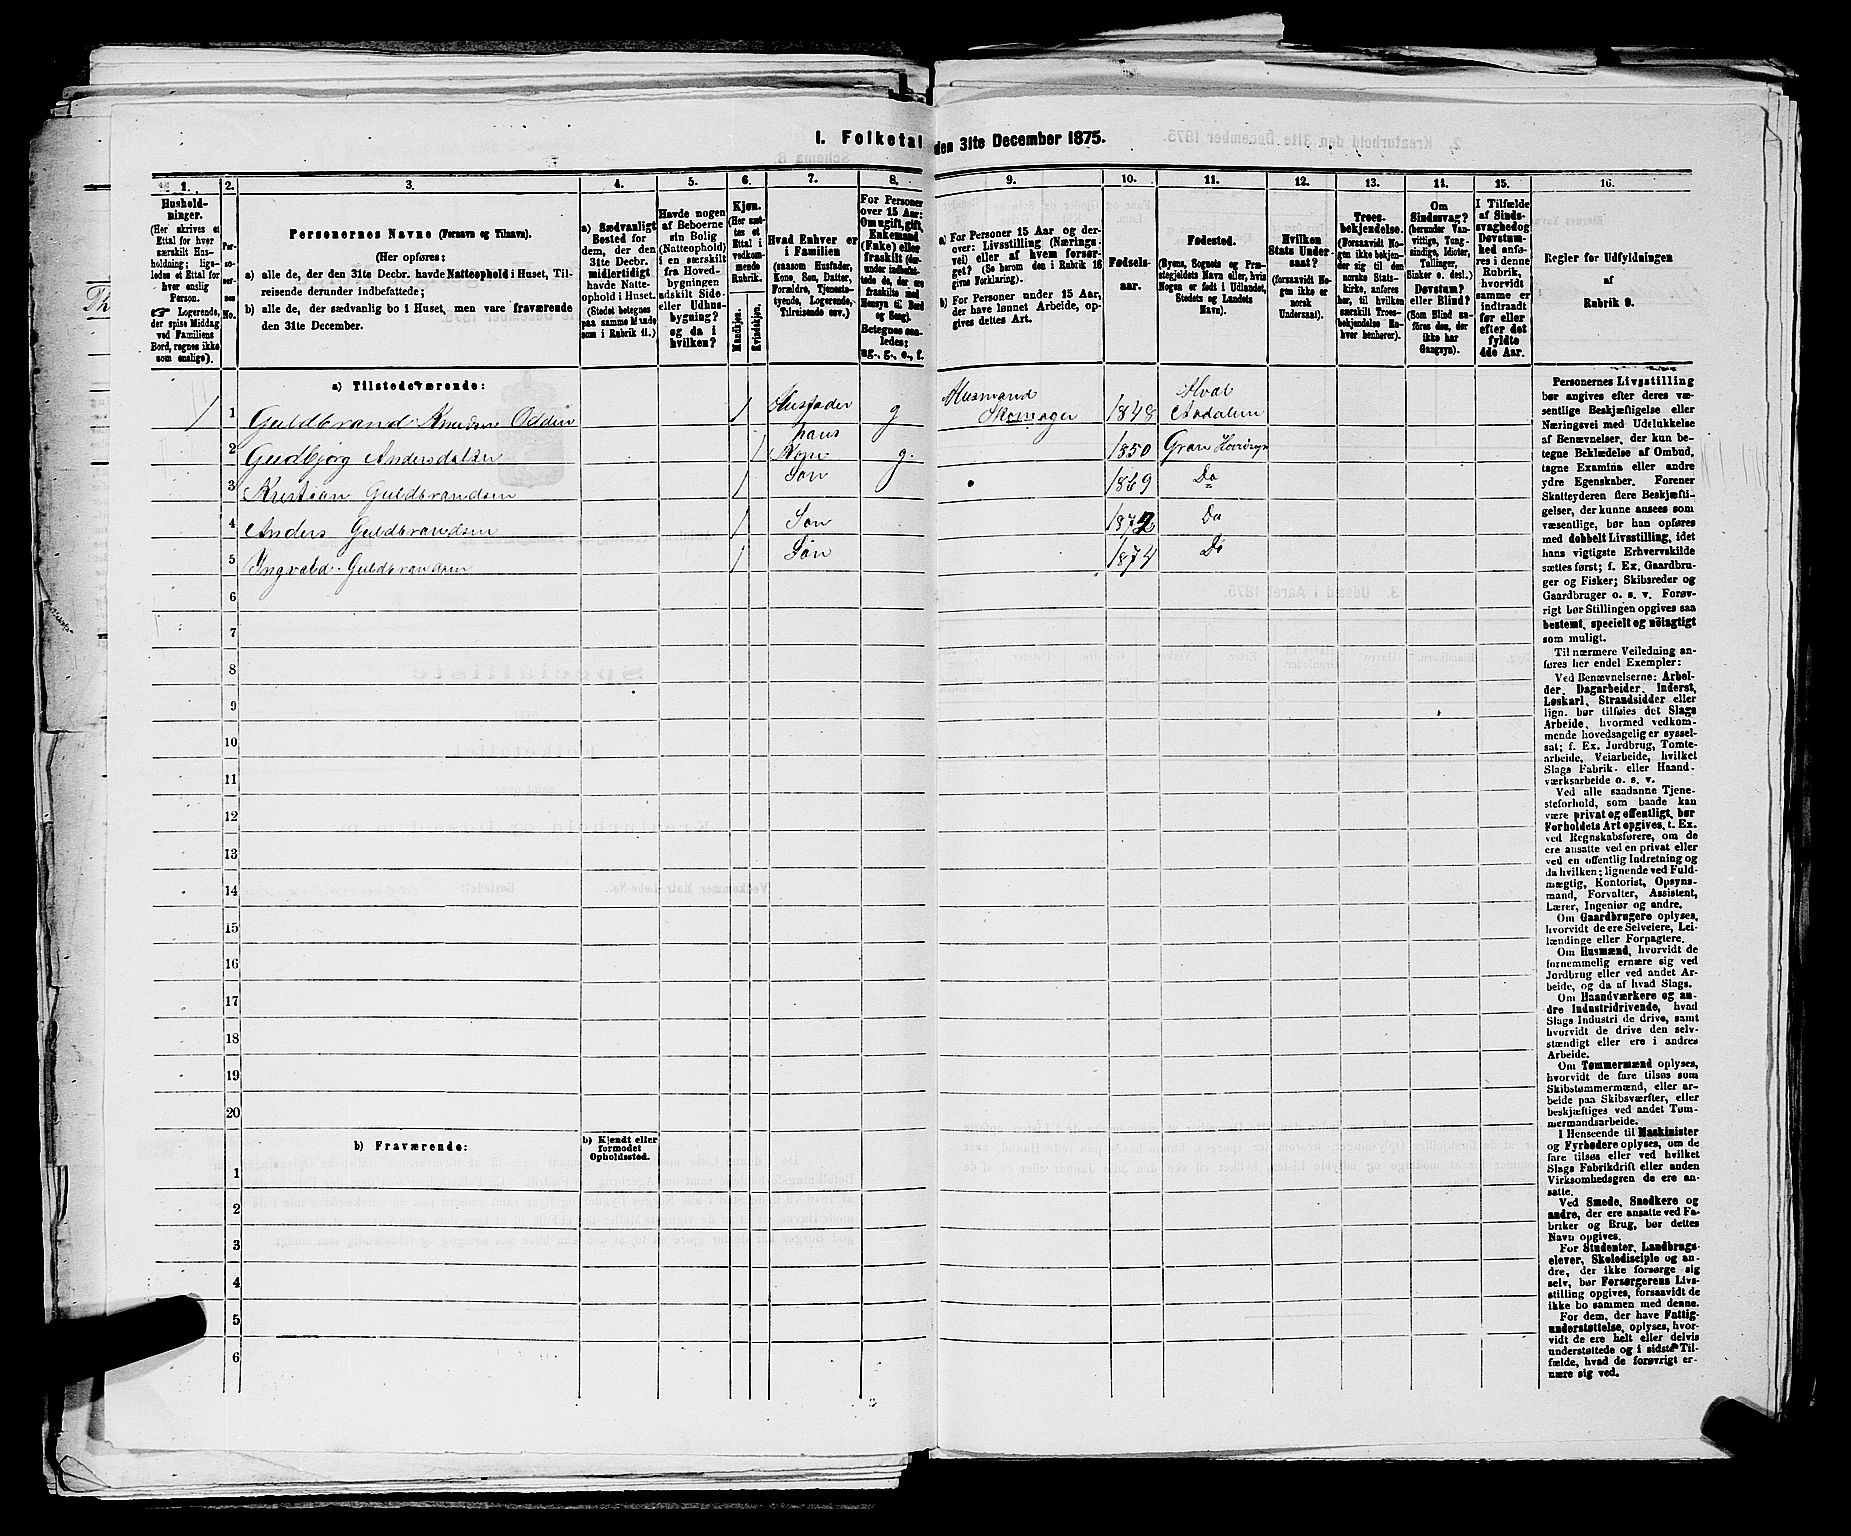 I. Folketal den 31te December 1875.
1. 2. 3. 4. 5. 6. 7. 8. 9. 10. 11. 12. 13. 14. 15. 16.
Hushold-
ninger.
(Her skrives et
Ettal for hver
særskilt Hus-
holdning; lige-
ledes et Ettal for
hver enslig
Person.
☞ Logerende,
der spise Middag
ved Familiens
Bord, regnes ikke
som enslige).
Per-
so-
ner-
nes
No.
Personernes Navne (Fornavn og Tilnavn).
(Her opføres:
a) alle de, der den 31te Decbr. havde Natteophold i Huset, Til-
reisende derunder indbefattede;
b) alle de, der sædvanlig bo i Huset, men vare fraværende
den 31te December.
a) Sædvanligt
Bosted for
dem, der den
31te Decbr.
midlertidigt
havde Natte-
ophold i Huset.
(Stedet betegnes
paa samme Maade
som i Rubrik 11.)
Havde nogen
af Beboerne
sin Bolig
(Natteophold)
i en særskilt
fra Hoved-
bygningen
adskilt Side-
eller Udhus-
bygning?
og da i
hvilken?
Kjøn.
(Her sæt-
tes et
Ettal i
vedkom-
mende
Rubrik.
Mandkjøn.
Kvindekjøn.
Hvad Enhver er
i Familien
(saasom Husfader,
Kone, Søn, Datter,
Forældre, Tjeneste-
tyende, Logerende,
Tilreisende osv.)
For Personer
over 15 Aar:
Om ugift, gift,
Enkemand
(Enke) eller
fraskilt (der-
under indbefat-
tede de, der ere
fraskilte med
Hensyn til Bord
og Seng).
Betegnes saa-
ledes:
ug., g., e., f.
a) For Personer 15 Aar og der-
over: Livsstilling (Nærings-
vei) eller af hvem forsør-
get? (Se herom den i Rubrik 16
givne Forklaring).
b) For Personer under 15 Aar,
der have lønnet Arbeide, op-
gives dettes Art.
Fødsels-
aar.
Fødested.
(Byens, Sognets og Præ-
stegjeldets Navn eller, hvis
Nogen er født i Udlandet,
Stedets og Landets
Navn).
Hvilken
Stats Under-
saat?
(forsaavidt No-
gen ikke er
norsk
Undersaat).
Troes-
bekjendelse.
(Forsaavidt No-
gen ikke bekjen-
der sig til den
norske Stats-
kirke, anføres
her, til hvilken
særskilt Troes-
bekjendelse En-
hver henhører).
Om
Sindssvag?
(herunder Van-
vittige, Tung-
sindige, Idioter,
Tullinger,
Sinker o. desl.)
Døvstum?
eller Blind?
(Som Blind an-
føres den, der
ikke har
Gangsyn).
I Tilfælde
af Sinds-
svaghed og
Døvstum-
hed anfø-
res i denne
Rubrik,
hvorvidt
samme er
indtraadt
før eller
efter det
fyldte
4de Aar.
Regler for Udfyldningen
af
Rubrik 9.
a) Tilstedeværende:
1 1 Guldbrand Knudsen Odden 1 Husfader g Husmand Skomager 1848 Hval Aadalen
2 Gudbjørg Andersdatter 1 hans Kone g. 1850 Gran
3 Kristian Guldbrandsen 1 Søn 1869 Do
4 Anders Guldbrandsen 1 Søn 1872 Do
5 Ingvald Guldbrandsen 1 Søn 1874 Do
6
7
8
9
10
11
12
13
14
15
16
17
18
19
20
b) Fraværende:
b) Kjendt eller
formodet
Opholdssted.
1
2
3
4
5
6
Personernes Livsstilling
bør angives efter deres væ-
sentlige Beskjæftigelse eller
Næringsvei med Udelukkelse
af Benævnelser, der kun be-
tegne Beklædelse af Ombud,
tagne Examina eller andre
ydre Egenskaber. Forener
Skatteyderen flere Beskjæfti-
gelser, der kunne ansees som
væsentlige, bør han opføres
med dobbelt Livsstilling, idet
hans vigtigste Erhvervskilde
sættes først; f. Ex. Gaardbru-
ger og Fisker; Skibsreder og
Gaardbruger o. s. v. Forøv-
rigt bør Stillingen opgives saa
bestemt, specielt og nøiagtigt
som muligt.
Til nærmere Veiledning an-
føres her endel Exempler:
Ved Benævnelserne: Arbei-
der, Dagarbeider, Inderst,
Løskarl, Strandsidder eller
lign. bør tilføies det Slags
Arbeide, hvormed vedkom-
mende hovedsagelig er syssel-
sat; f. Ex. Jordbrug, Tomte-
arbeide, Veiarbeide, hvilket
Slags Fabrik- eller Haand-
værksarbeide o. s. v.
Ved alle saadanne Tjene-
steforhold, som baade kan
være privat og offentligt, bør
Forholdets Art opgives, t. Ex.
ved Regnskabsførere, om de
ere ansatte ved en privat eller
ved en offentlig Indretning og
da hvilken; lignende ved Fuld-
mægtig, Kontorist, Opsyns-
mand, Forvalter, Assistent,
Lærer, Ingeniør og andre.
Om Gaardbrugere oplyses,
hvorvidt de ere Selveiere, Lei-
lændinge eller Forpagtere.
Om Husmænd, hvorvidt de
fornemmelig ernære sig ved
Jordbrug eller ved andet Ar-
beide, og da af hvad Slags.
Om Haandværkere og an-
dre Industridrivende, hvad
Slags Industri de drive, samt
hvorvidt de drive den selv-
stændigt eller ere i andres
Arbeide.
Om Tømmermænd oplyses,
hvorvidt de fare tilsøs som
Skibstømmermænd, eller ar-
beide paa Skibsværfter, eller
beskjæftiges ved andet Tøm-
mermandsarbeide.
I Henseende til Maskinister
og Fyrbødere oplyses, om de
fare tilsøs eller ved hvilket
Slags Fabrikdrift eller anden
Virksomhedsgren de ere an-
satte.
Ved Smede, Snedkere og
andre, der ere ansatte ved Fa-
briker og Brug, bør dettes
Navn opgives.
For Studenter, Landbrugs-
elever, Skoledisciple og an-
dre, der ikke forsørge sig
selv, bør Forsørgerens Livs-
stilling opgives, forsaavidt de
ikke bo sammen med denne.
For dem, der have Fattig-
understøttelse, oplyses, hvor-
vidt de ere helt eller delvis
understøttede og i sidste Til-
fælde, hvad de forøvrigt er-
nære sig ved.